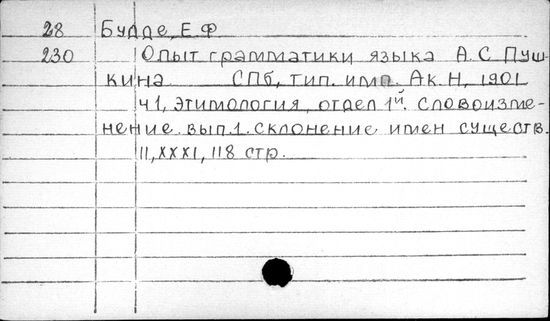 28 Будде, Е.Ф
230 Опыт грамматики языка А.С. Пуш-
кина СПб, тип. имп. Ак. Н, 1901
ч1, Этимология, отдел 1й. Словоизме-
нение. вып.1. Склонение имен существ.
II, XXXI, 118 стр.